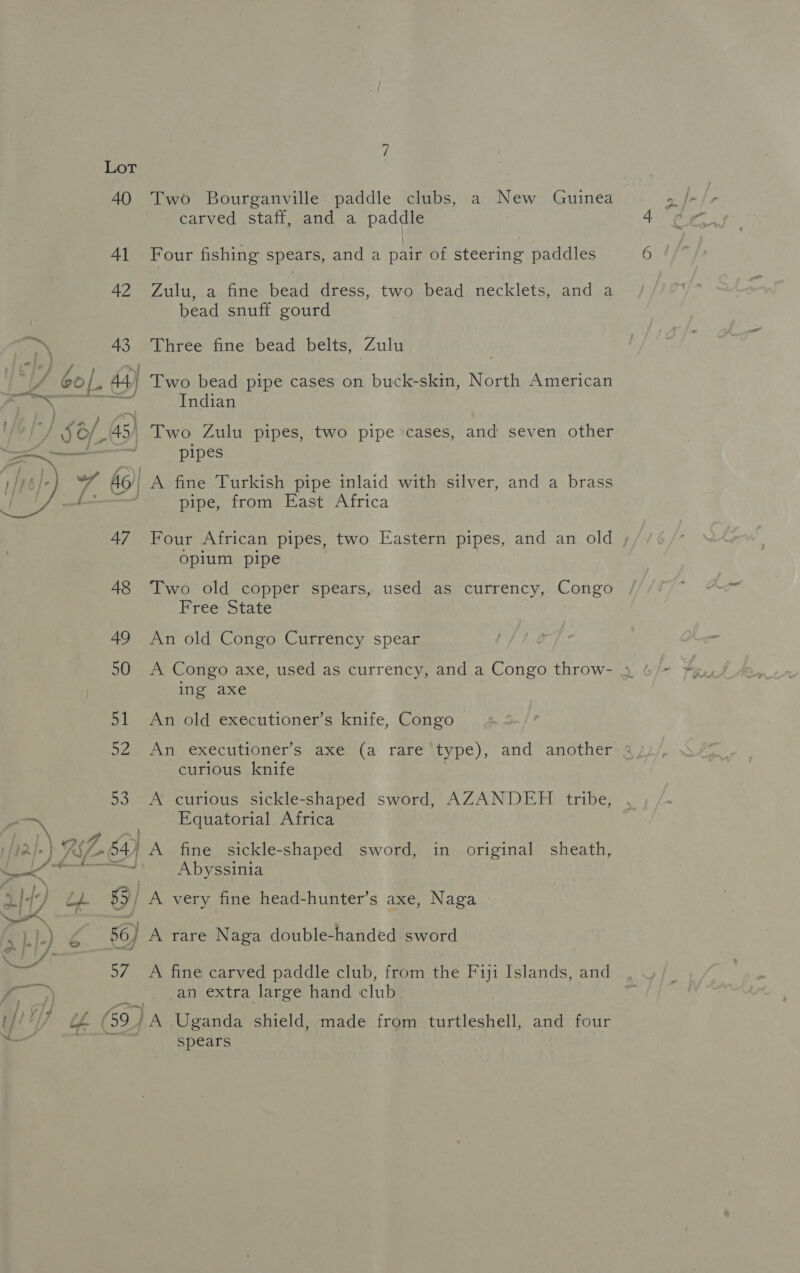 7
LOT
40 Two Bourganville paddle clubs, a New Guinea
carved staff, and a paddle 4
41 Four fishing spears, and a pair of steering paddles 6
42 Zulu, a fine bead dress, two bead necklets, and a
bead snuff gourd
43 Three fine bead belts, Zulu
44 Two bead pipe cases on buck-skin, North American
Indian
45 Two Zulu pipes, two pipe cases, and seven other
pipes
46 A fine Turkish pipe inlaid with silver, and a brass
pipe, from East Africa
47 Four African pipes, two Eastern pipes, and an old
opium pipe
48 Two old copper spears, used as currency, Congo
Free State
49 An old Congo Currency spear
50 A Congo axe, used as currency, and a Congo throw-
ing axe
51 An old executioner's knife, Congo
52 An executioner's axe (a rare type), and another
curious knife
53 A curious sickle-shaped sword, AZANDEH tribe,
Equatorial Africa
54 A fine sickle-shaped sword, in original sheath,
Abyssinia
55 A very fine head-hunter's axe, Naga
56 A rare Naga double-handed sword
57 A fine carved paddle club, from the Fiji Islands, and
an extra large hand club
59 A Uganda shield, made from turtleshell, and four
spears